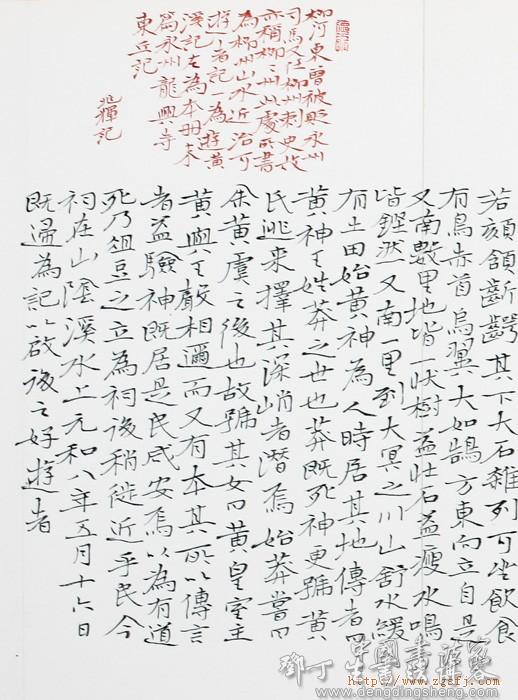 柳河東曾被貶永州
司馬又任柳州刺史故
亦稱柳柳州此處所書
為柳州山水近治可
遊者記一為遊黄
溪記左為本冊末
篇永州龍興寺
東丘記
若頦頷齗齶其下大石雜列可坐飲食
有鳥赤首烏翼大如鵠方東向立自是
又南數里地皆一狀樹益壯石益瘦水鳴
皆鏗然又南一里到大冥之川山舒水緩
有土田始黄神為人時居其地傳者曰
黄神王姓莽之世也莽既死神更號黄
氏逃來擇其深峭者潛焉始莽嘗曰
余黄虞之後也故號其女曰黄皇室主
黄與王聲相邇而又有本其所以傳言
者益驗神既居是民咸安焉以為有道
死乃俎豆之立為祠後稍徙近乎民今
祠在山陰溪水上元和八年五月十六日
既歸為記以啟後之好遊者
http://www.zgsfj.com
dengdingsheng.com